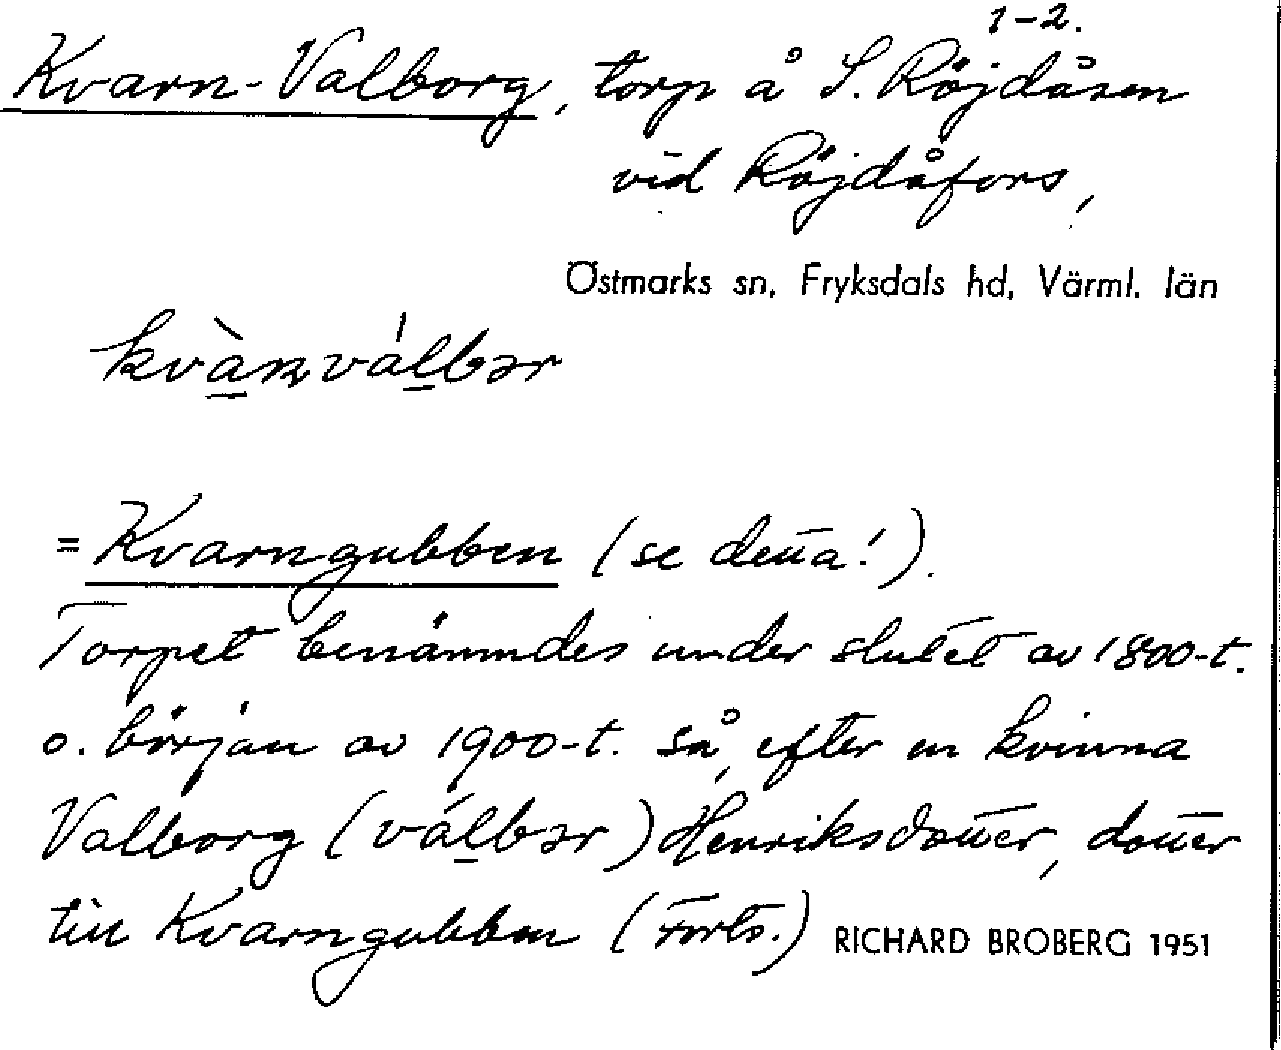 1-2.
Kvarn-Valborg, torp å S. Röjdåsen
vid Röjdåfors,
Östmarks sn, Fryksdals hd, Värml. län
kvàɳválbər
= Kvarngubben (se denna!).
Torpet benämndes under slutet av 1800-t.
o. början av 1900-t. så, efter en kvinna
Valborg (válbər) Henriksdotter, dotter
till Kvarngubben (Forts.) RICHARD BROBERG 1951